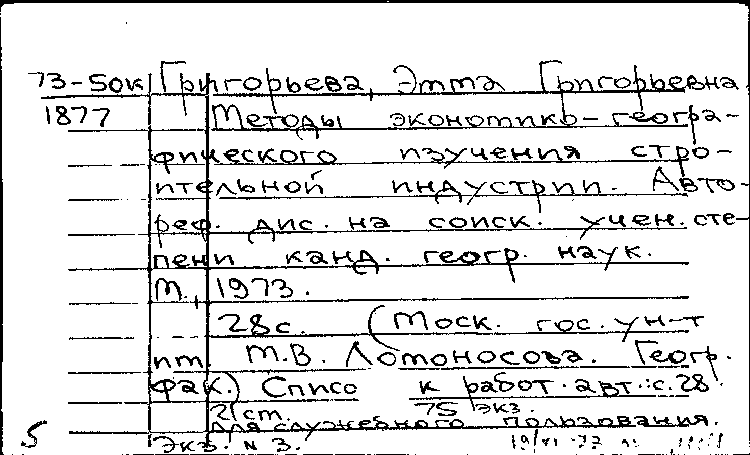 73-50к Григорьева, Эмма Григорьевна.
1877 Методы экономико-геогра-
фического изучения стро-
ительной индустрии. Авто-
реф. дис. на соиск. учен. сте-
пени канд. геогр. наук.
М., 1973.
28с. (Моск. гос. ун-т
им. М.В. Ломоносова. Геогр.
фак.) Списо к работ авт.: с.28.
21 ст. 75 экз.
Для служебного пользования.
5 Экз. N 3.